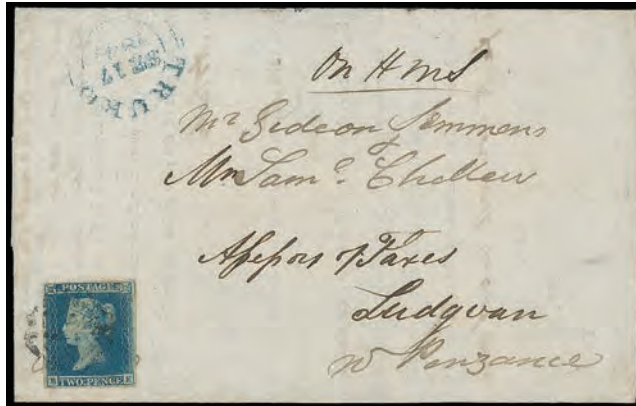 TRURO
SE 17
On H M S
Mr Gideon Semmens
&
Mr Saml. Chellew
Assessors of Taxes
Ludgvan
nr Penzance
POSTAGE
TWO PENCE